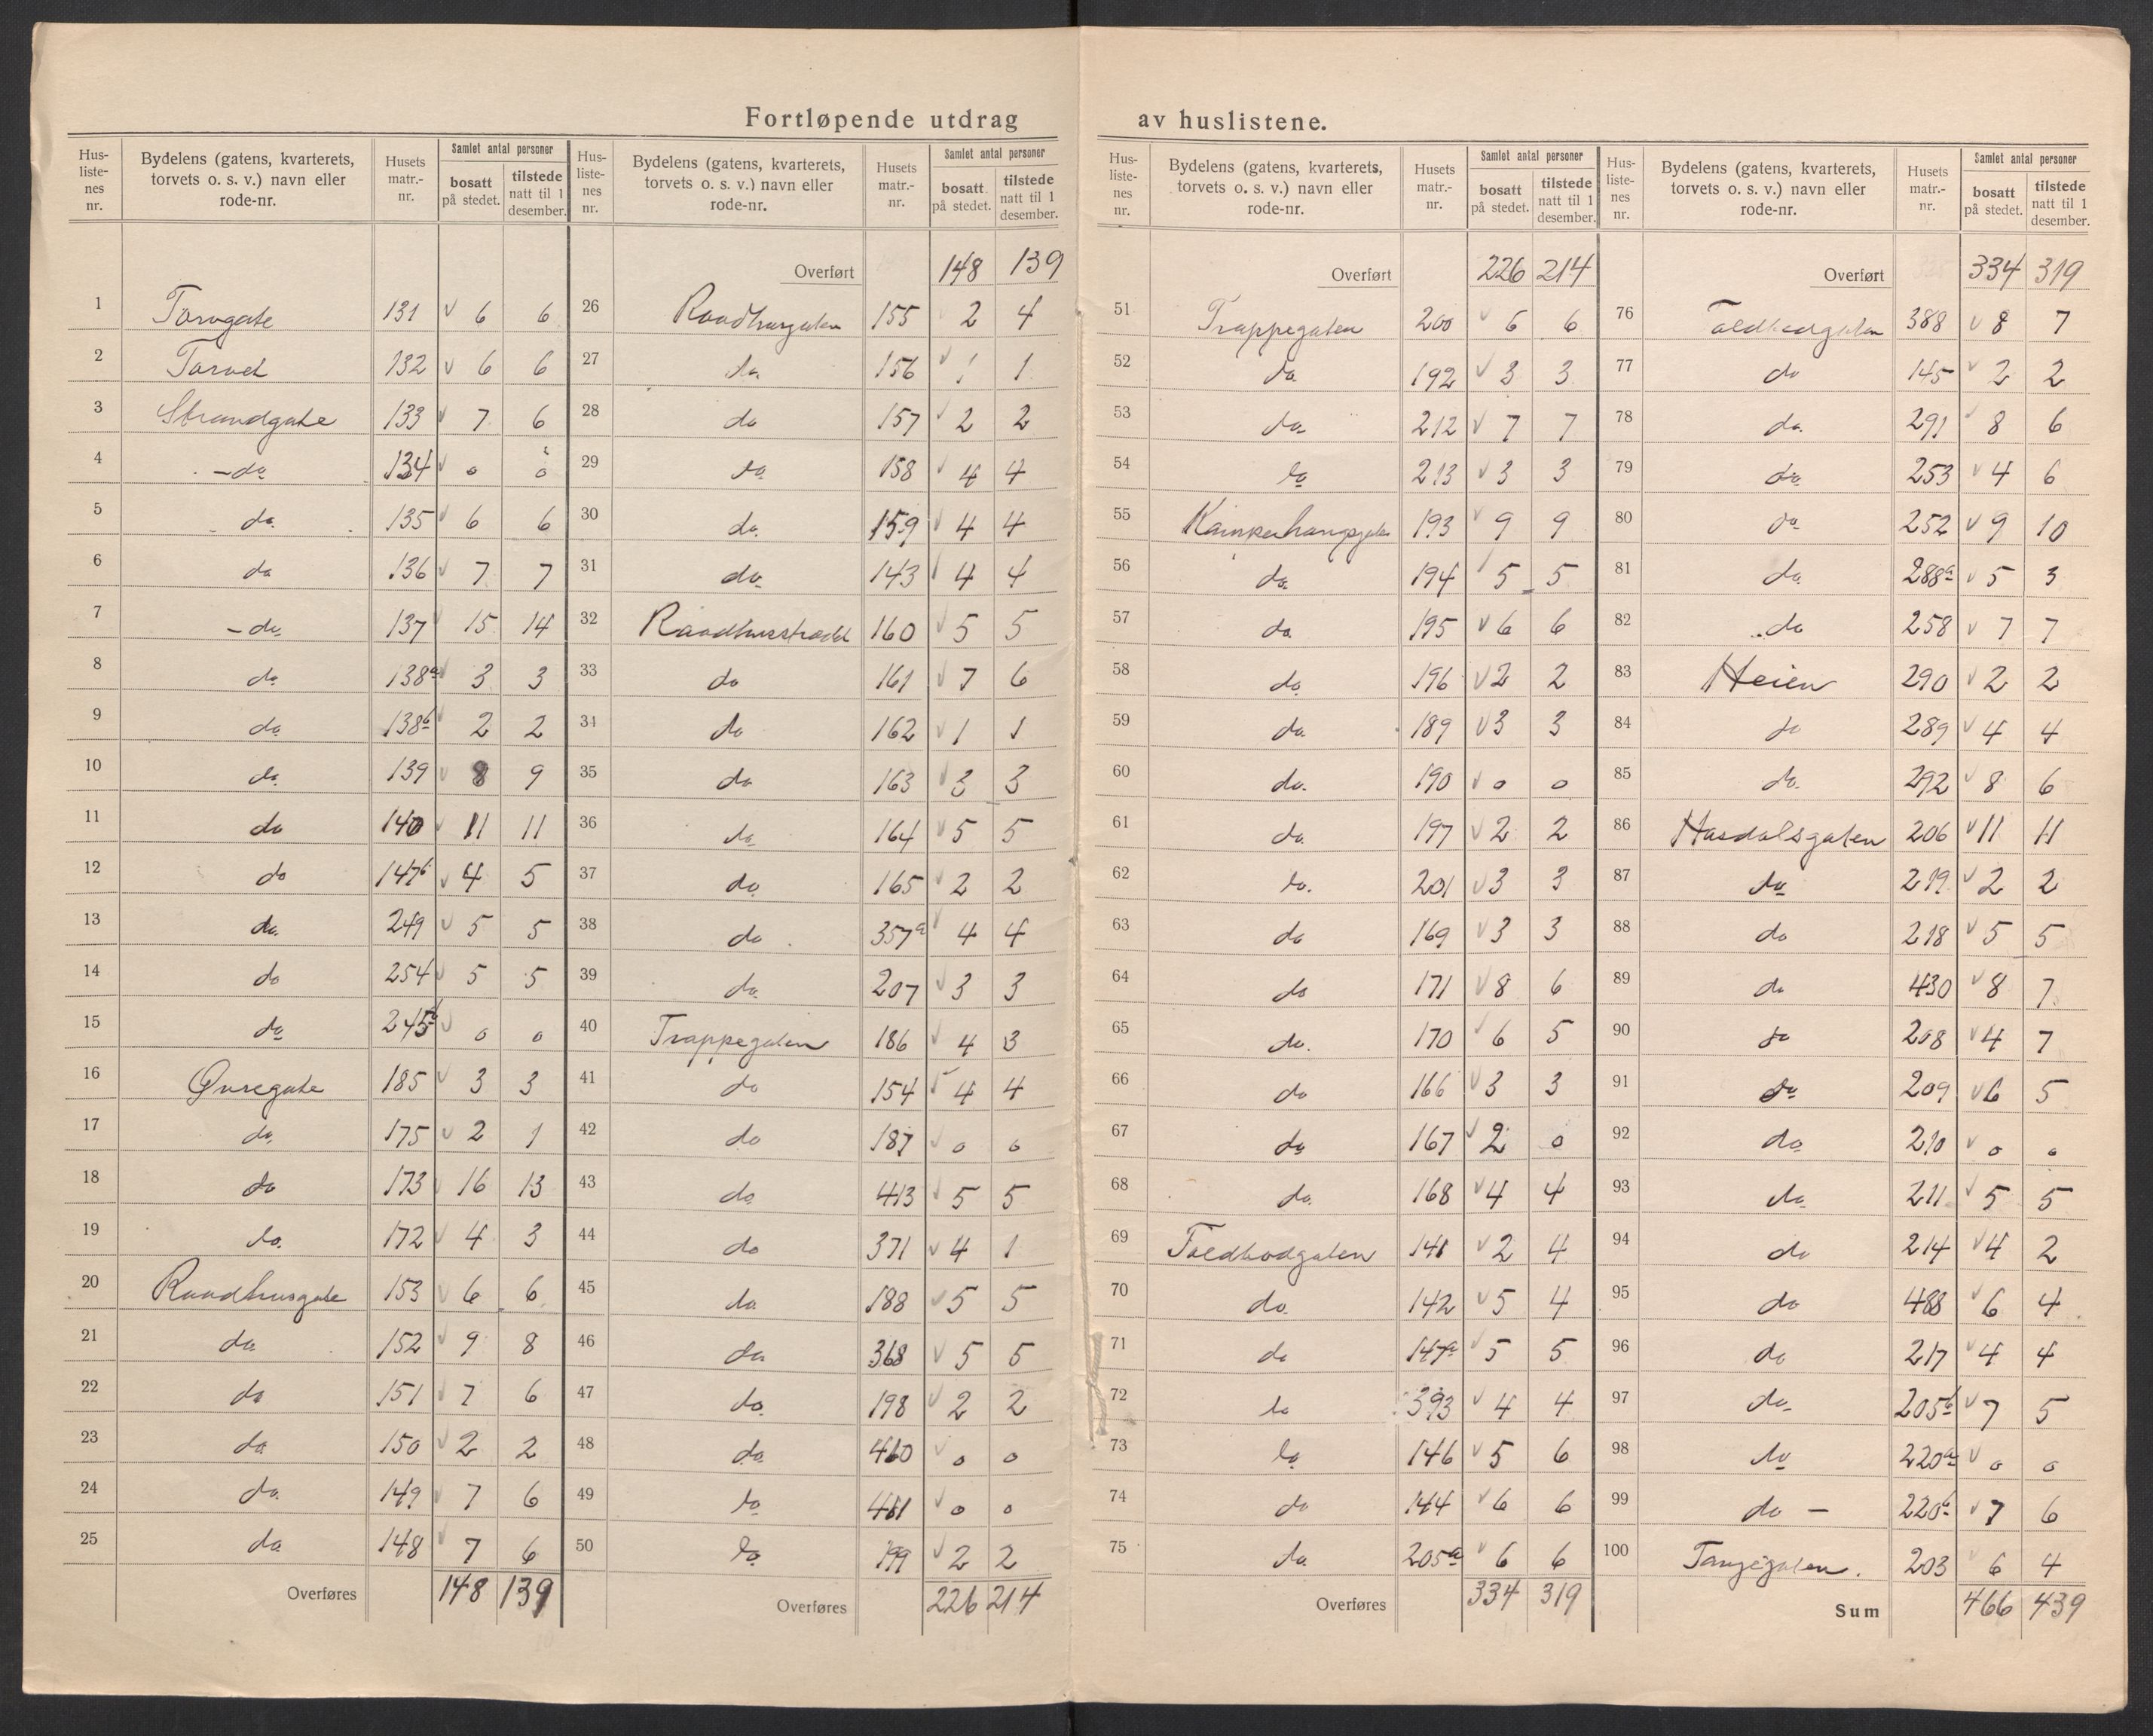 Fortløpende utdrag av huslistene.
Hus-liste-nes nr. Bydelens (gatens, kvarterets, torvets o. s. v.) navn eller rode-nr. Husets matr.-nr. Samlet antal personer bosatt på stedet. tilstede natt til 1 desember.
1 Torvgate 131 6 6
2 Torvet 132 6 6
3 Strandgate 133 7 6
4 - do 134 0 0
5 do. 135 6 6
6 do 136 7 7
7 - do. 137 15 14
8 do 138a 3 3
9 do. 138b 2 2
10 do. 139 8 9
11 do 140 11 11
12 do 147b 4 5
13 do. 249 5 5
14 do 254 5 5
15 do 245b 0 0
16 Øvregate 185 3 3
17 do. 175 2 1
18 do 173 16 13
19 do. 172 4 3
20 Raadhusgate 153 6 6
21 do. 152 9 8
22 do 151 7 6
23 do 150 2 2
24 do. 149 7 6
25 do. 148 7 6
Overføres 148 139
Hus-liste-nes nr. Bydelens (gatens, kvarterets, torvets o. s. v.) navn eller rode-nr. Husets matr.-nr. Samlet antal personer bosatt på stedet. tilstede natt til 1 desember.
Overført 148 139
26 Raadhusgaten 155 2 4
27 do. 156 1 1
28 do 157 2 2
29 do 158 4 4
30 do. 159 4 4
31 do. 143 4 4
32 Raadhusstrædet 160 5 5
33 do 161 7 6
34 do 162 1 1
35 do 163 3 3
36 do 164 5 5
37 do 165 2 2
38 do 357a 4 4
39 do. 207 3 3
40 Trappegaten 186 4 3
41 do 154 4 4
42 do 187 0 0
43 do 413 5 5
44 do 371 4 1
45 do 188 5 5
46 do. 368 5 5
47 do. 198 2 2
48 do. 460 0 0
49 do 461 0 0
50 do 199 2 2
Overføres 226 214
Hus-liste-nes nr. Bydelens (gatens, kvarterets, torvets o. s. v.) navn eller rode-nr. Husets matr.-nr. Samlet antal personer bosatt på stedet. tilstede natt til 1 desember.
Overført 226 214
51 Trappegaten 200 6 6
52 do. 192 3 3
53 do. 212 7 7
54 do 213 3 3
55 193 9 9
56 do. 194 5 5
57 do. 195 6 6
58 do. 196 2 2
59 do. 189 3 3
60 do. 190 0 0
61 do. 197 2 2
62 do. 201 3 3
63 do 169 3 3
64 do 171 8 6
65 do. 170 6 5
66 do 166 3 3
67 do 167 2 0
68 do. 168 4 4
69 Toldbodgaten 141 2 4
70 do. 142 5 4
71 do 147a 5 5
72 do 393 4 4
73 do 146 5 6
74 do 144 6 6
75 do. 205a 6 6
Overføres 334 319
Hus-liste-nes nr. Bydelens (gatens, kvarterets, torvets o. s. v.) navn eller rode-nr. Husets matr.-nr. Samlet antal personer bosatt på stedet. tilstede natt til 1 desember.
Overført 334 319
76 Toldbodgaten 388 8 7
77 do 145 2 2
78 do. 291 8 6
79 do 253 4 6
80 do 252 9 10
81 do. 288a 5 3
82 do 258 7 7
83 Heien 290 2 2
84 do 289 4 4
85 do. 292 8 6
86 Hasdalsgaten 206 11 11
87 do 219 2 2
88 do 218 5 5
89 do 430 8 7
90 do 208 4 7
91 do 209 6 5
92 do 210 0 0
93 do 211 5 5
94 do 214 4 2
95 do 488 6 4
96 do 217 4 4
97 do. 205b 7 5
98 do 220a 0 0
99 do - 220b 7 6
100 Tangegaten. 203 6 4
Sum 466 439